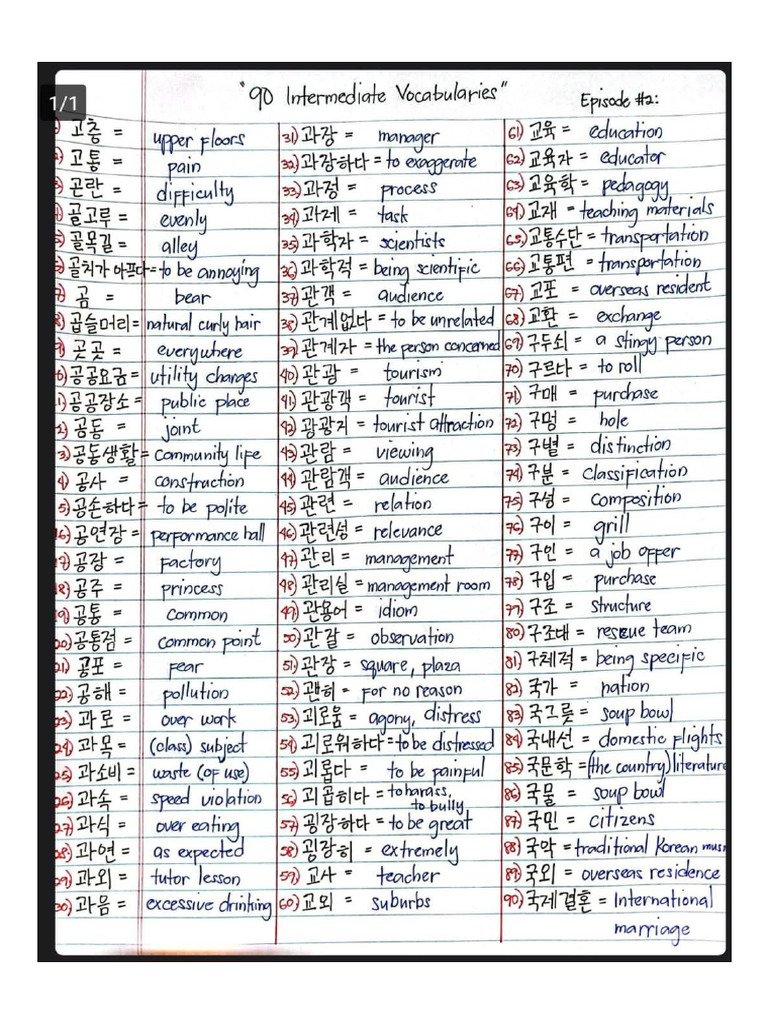 1/1
"90 Intermediate Vocabularies"
Episode #2:
1) 고층 = upper floors
2) 고통 = pain
3) 곤란 = difficulty
4) 골고루 = evenly
5) 골목길 = alley
6) 골치가 아프다 = to be annoying
7) 곰 = bear
8) 곱슬머리 = natural curly hair
9) 곳곳 = everywhere
10) 공공요금 = utility charges
1) 공공장소 = public place
2) 공동 = joint
3) 공동생활 = community life
4) 공사 = construction
5) 공손하다 = to be polite
16) 공연장 = performance hall
17) 공장 = factory
18) 공주 = princess
19) 공통 = common
20) 공통점 = common point
21) 공포 = fear
22) 공해 = pollution
23) 과로 = over work
24) 과목 = (class) subject
25) 과소비 = waste (of use)
26) 과속 = speed violation
27) 과식 = over eating
28) 과연 = as expected
29) 과외 = tutor lesson
30) 과음 = excessive drinking
31) 과장 = manager
32) 과장하다 = to exaggerate
33) 과정 = process
34) 과제 = task
35) 과학자 = scientists
36) 과학적 = being scientific
37) 관객 = audience
38) 관계없다 = to be unrelated
39) 관계자 = the person concerned
40) 관광 = tourism
41) 관광객 = tourist
42) 광광지 = tourist attraction
43) 관람 = viewing
44) 관람객 = audience
45) 관련 = relation
46) 관련성 = relevance
47) 관리 = management
48) 관리실 = management room
49) 관용어 = idiom
50) 관찰 = observation
51) 광장 = square, plaza
52) 괜히 = for no reason
53) 괴로움 = agony, distress
54) 괴로워하다 = to be distressed
55) 괴롭다 = to be painful
56) 괴롭히다 = to harass, to bully
57) 굉장하다 = to be great
58) 굉장히 = extremely
59) 교사 = teacher
60) 교외 = suburbs
61) 교육 = education
62) 교육자 = educator
63) 교육학 = pedagogy
64) 교재 = teaching materials
65) 교통수단 = transportation
66) 교통편 = transportation
67) 교포 = overseas resident
68) 교환 = exchange
69) 구두쇠 = a stingy person
70) 구르다 = to roll
71) 구매 = purchase
72) 구멍 = hole
73) 구별 = distinction
74) 구분 = classification
75) 구성 = composition
76) 구이 = grill
77) 구인 = a job offer
78) 구입 = purchase
79) 구조 = structure
80) 구조대 = rescue team
81) 구체적 = being specific
82) 국가 = nation
83) 국그릇 = soup bowl
84) 국내선 = domestic flights
85) 국문학 = (the country) literature
86) 국물 = soup bowl
87) 국민 = citizens
88) 국악 = traditional Korean musi
89) 국외 = overseas residence
90) 국제결혼 = International marriage